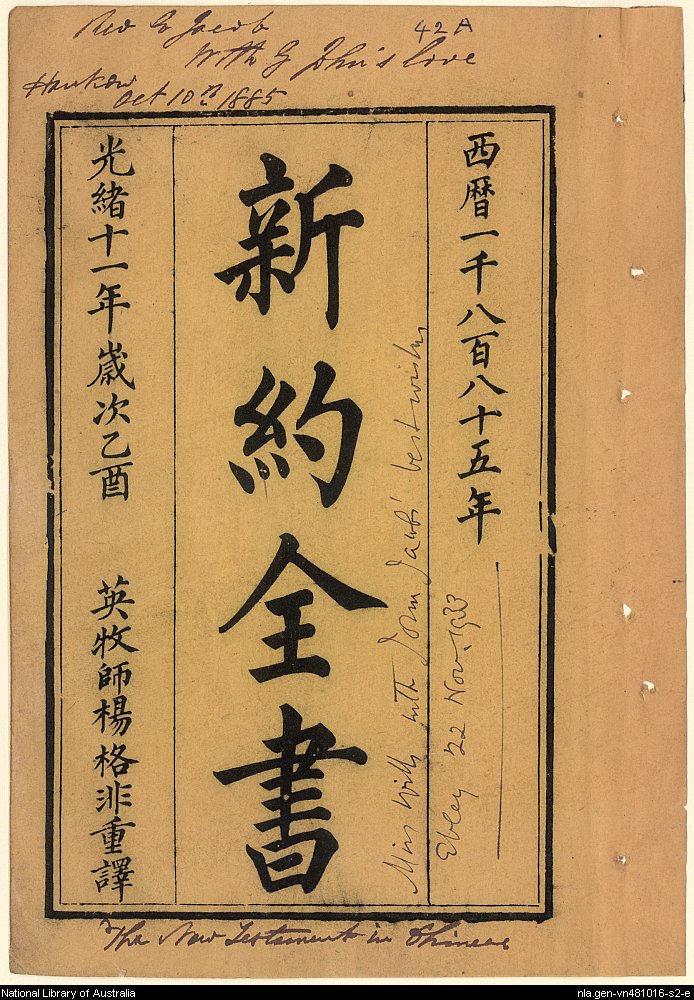 Rev E Jacob
42A
With G John's love
Hankow
Oct 10th 1885
西暦一千八百八十五年
新約全書
光緒十一年歲次乙酉
英牧師楊格非重譯
Miss Wills with John Jacobs' best wishes
Ebley 22 Nov. 1933
The New Testament in Chinese
National Library of Australia
nla.gen-vn481016-s2-e